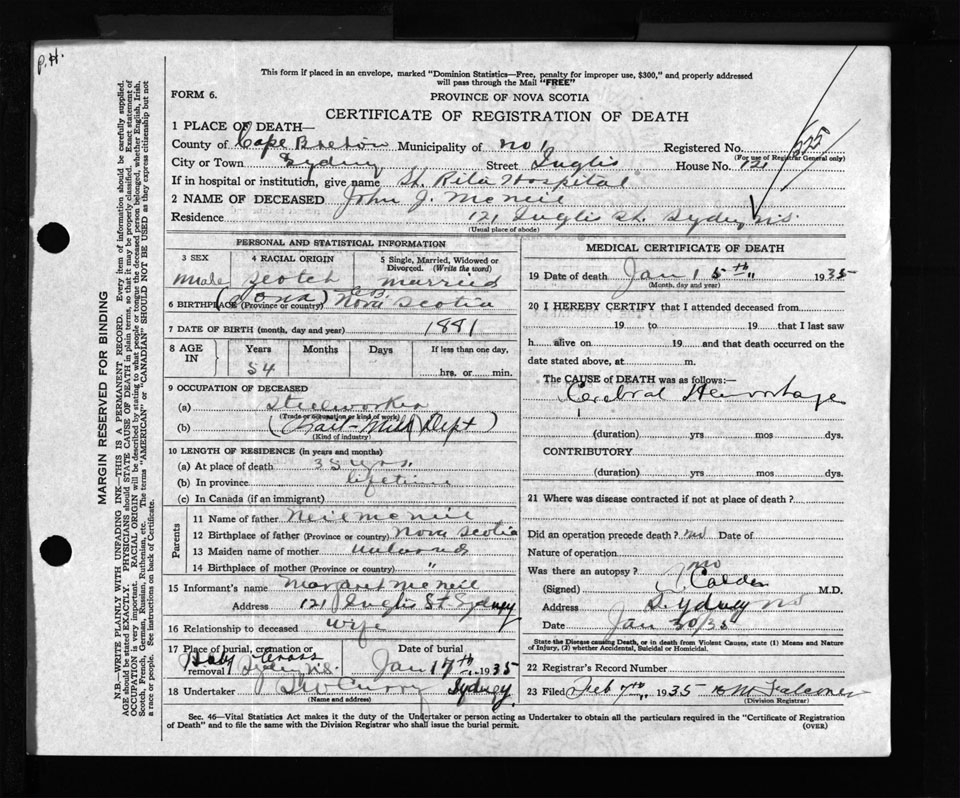 P.H.
This form if placed in an envelope, marked "Dominion Statistics—Free, penalty for improper use, $300," and properly addressed
will pass through the Mail "FREE"
FORM 6.
PROVINCE OF NOVA SCOTIA
CERTIFICATE OF REGISTRATION OF DEATH
1 PLACE OF DEATH—
County of Cape Breton Municipality of No 1 Registered No. 525
(For use of Registrar General only)
City or Town Sydney Street Inglis House No. 121
If in hospital or institution, give name St. Rita Hospital
2 NAME OF DECEASED John J. McNeil
Residence 121 Inglis St. Sydney N.S.
(Usual place of abode)
PERSONAL AND STATISTICAL INFORMATION
3 SEX 4 RACIAL ORIGIN 5 Single, Married, Widowed or Divorced. (Write the word)
male Scotch married
6 BIRTHPLACE (Province or country) (Iona) C.B. Nova Scotia
7 DATE OF BIRTH (month, day and year) 1881
8 AGE IN Years Months Days If less than one day,
54 hrs. or min.
9 OCCUPATION OF DECEASED
(a) Steelworker
(Trade or occupation or kind of work)
(b) Mill Dept
(Kind of industry)
10 LENGTH OF RESIDENCE (in years and months)
(a) At place of death 35 yrs.
(b) In province lifetime
(c) In Canada (if an immigrant)
Parents
11 Name of father Neil McNeil
12 Birthplace of father (Province or country) Nova Scotia
13 Maiden name of mother
14 Birthplace of mother (Province or country) "
15 Informant's name Margaret McNeil
Address 121 Inglis St. Sydney
16 Relationship to deceased wife
17 Place of burial, cremation or removal Date of burial
Holy Cross
Sydney N.S. Jan 17th 1935
18 Undertaker Curry Sydney
(Name and address)
MEDICAL CERTIFICATE OF DEATH
19 Date of death Jan 15th 1935
(Month, day and year)
20 I HEREBY CERTIFY that I attended deceased from
19 to 19 that I last saw
h alive on 19 and that death occurred on the
date stated above, at m.
The CAUSE of DEATH was as follows:—
Cerebral Hemorrhage
(duration) yrs mos dys.
CONTRIBUTORY
(duration) yrs mos dys.
21 Where was disease contracted if not at place of death?
Did an operation precede death? Date of
Nature of operation
Was there an autopsy? no
(Signed) Calder M.D.
Address Sydney N.S.
Date Jan 30/35
State the Disease causing Death, or in death from Violent Causes, state (1) Means and Nature
of Injury, (2) whether Accidental, Suicidal or Homicidal.
22 Registrar's Record Number
23 Filed Feb 7th 1935 Falconer
(Division Registrar)
Sec. 46—Vital Statistics Act makes it the duty of the Undertaker or person acting as Undertaker to obtain all the particulars required in the "Certificate of Registration
of Death" and to file the same with the Division Registrar who shall issue the burial permit.
(OVER)
MARGIN RESERVED FOR BINDING
N.B.—WRITE PLAINLY WITH UNFADING INK—THIS IS A PERMANENT RECORD. Every item of information should be carefully supplied.
AGE should be stated EXACTLY. PHYSICIANS should STATE CAUSE OF DEATH in plain terms, so that it may be properly classified. Exact statement of
OCCUPATION is very important. RACIAL ORIGIN will be described by stating to what people or tongue the deceased person belonged, whether English, Irish,
Scotch, French, German, Russian, Ruthenian, etc. The terms "AMERICAN" or "CANADIAN" SHOULD NOT BE USED as they express citizenship but not
a race or people. See instructions on back of Certificate.